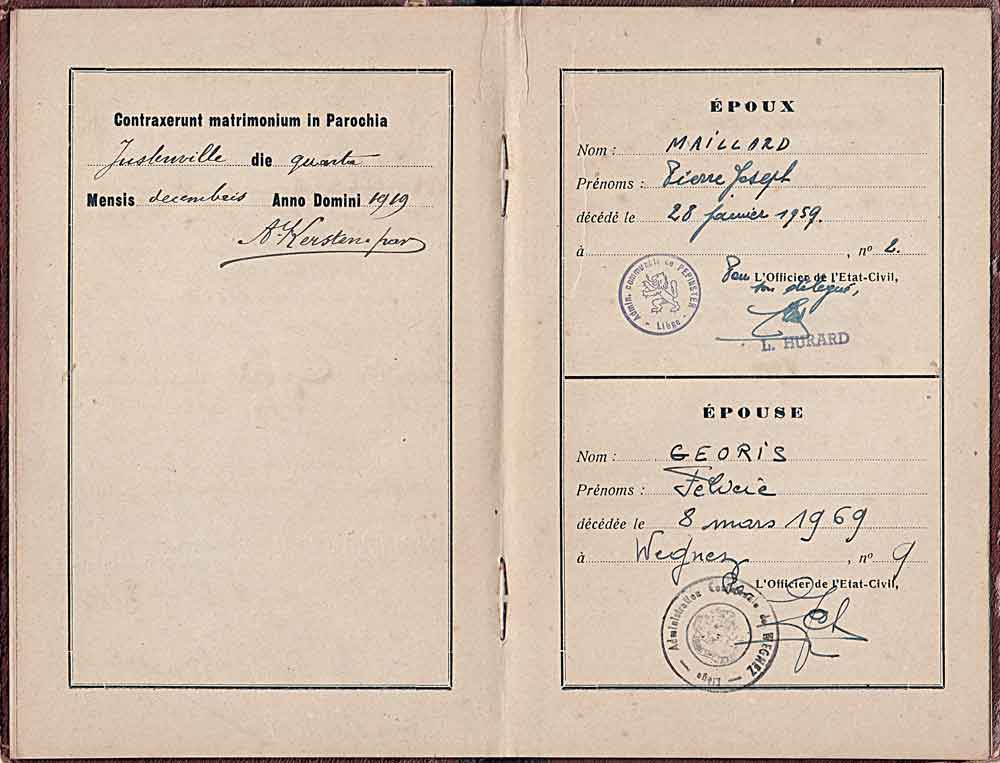 Contraxerunt matrimonium in Parochia
Justenville die quarta
Mensis decembris Anno Domini 1919
A. Kersten
ÉPOUX
Nom : MAILLARD
Prénoms : Pierre Joseph
décédé le 28 janvier 1959.
à , nº 2.
Pour L'Officier de l'Etat-Civil,
son délégué,
Admin. communale de PEPINSTER
- Liége -
L. HURARD
ÉPOUSE
Nom : GEORIS
Prénoms : Félicie
décédée le 8 mars 1969
à Wegnez nº 9
L'Officier de l'Etat-Civil,
Administration Communale de WEGNEZ
- Liège -